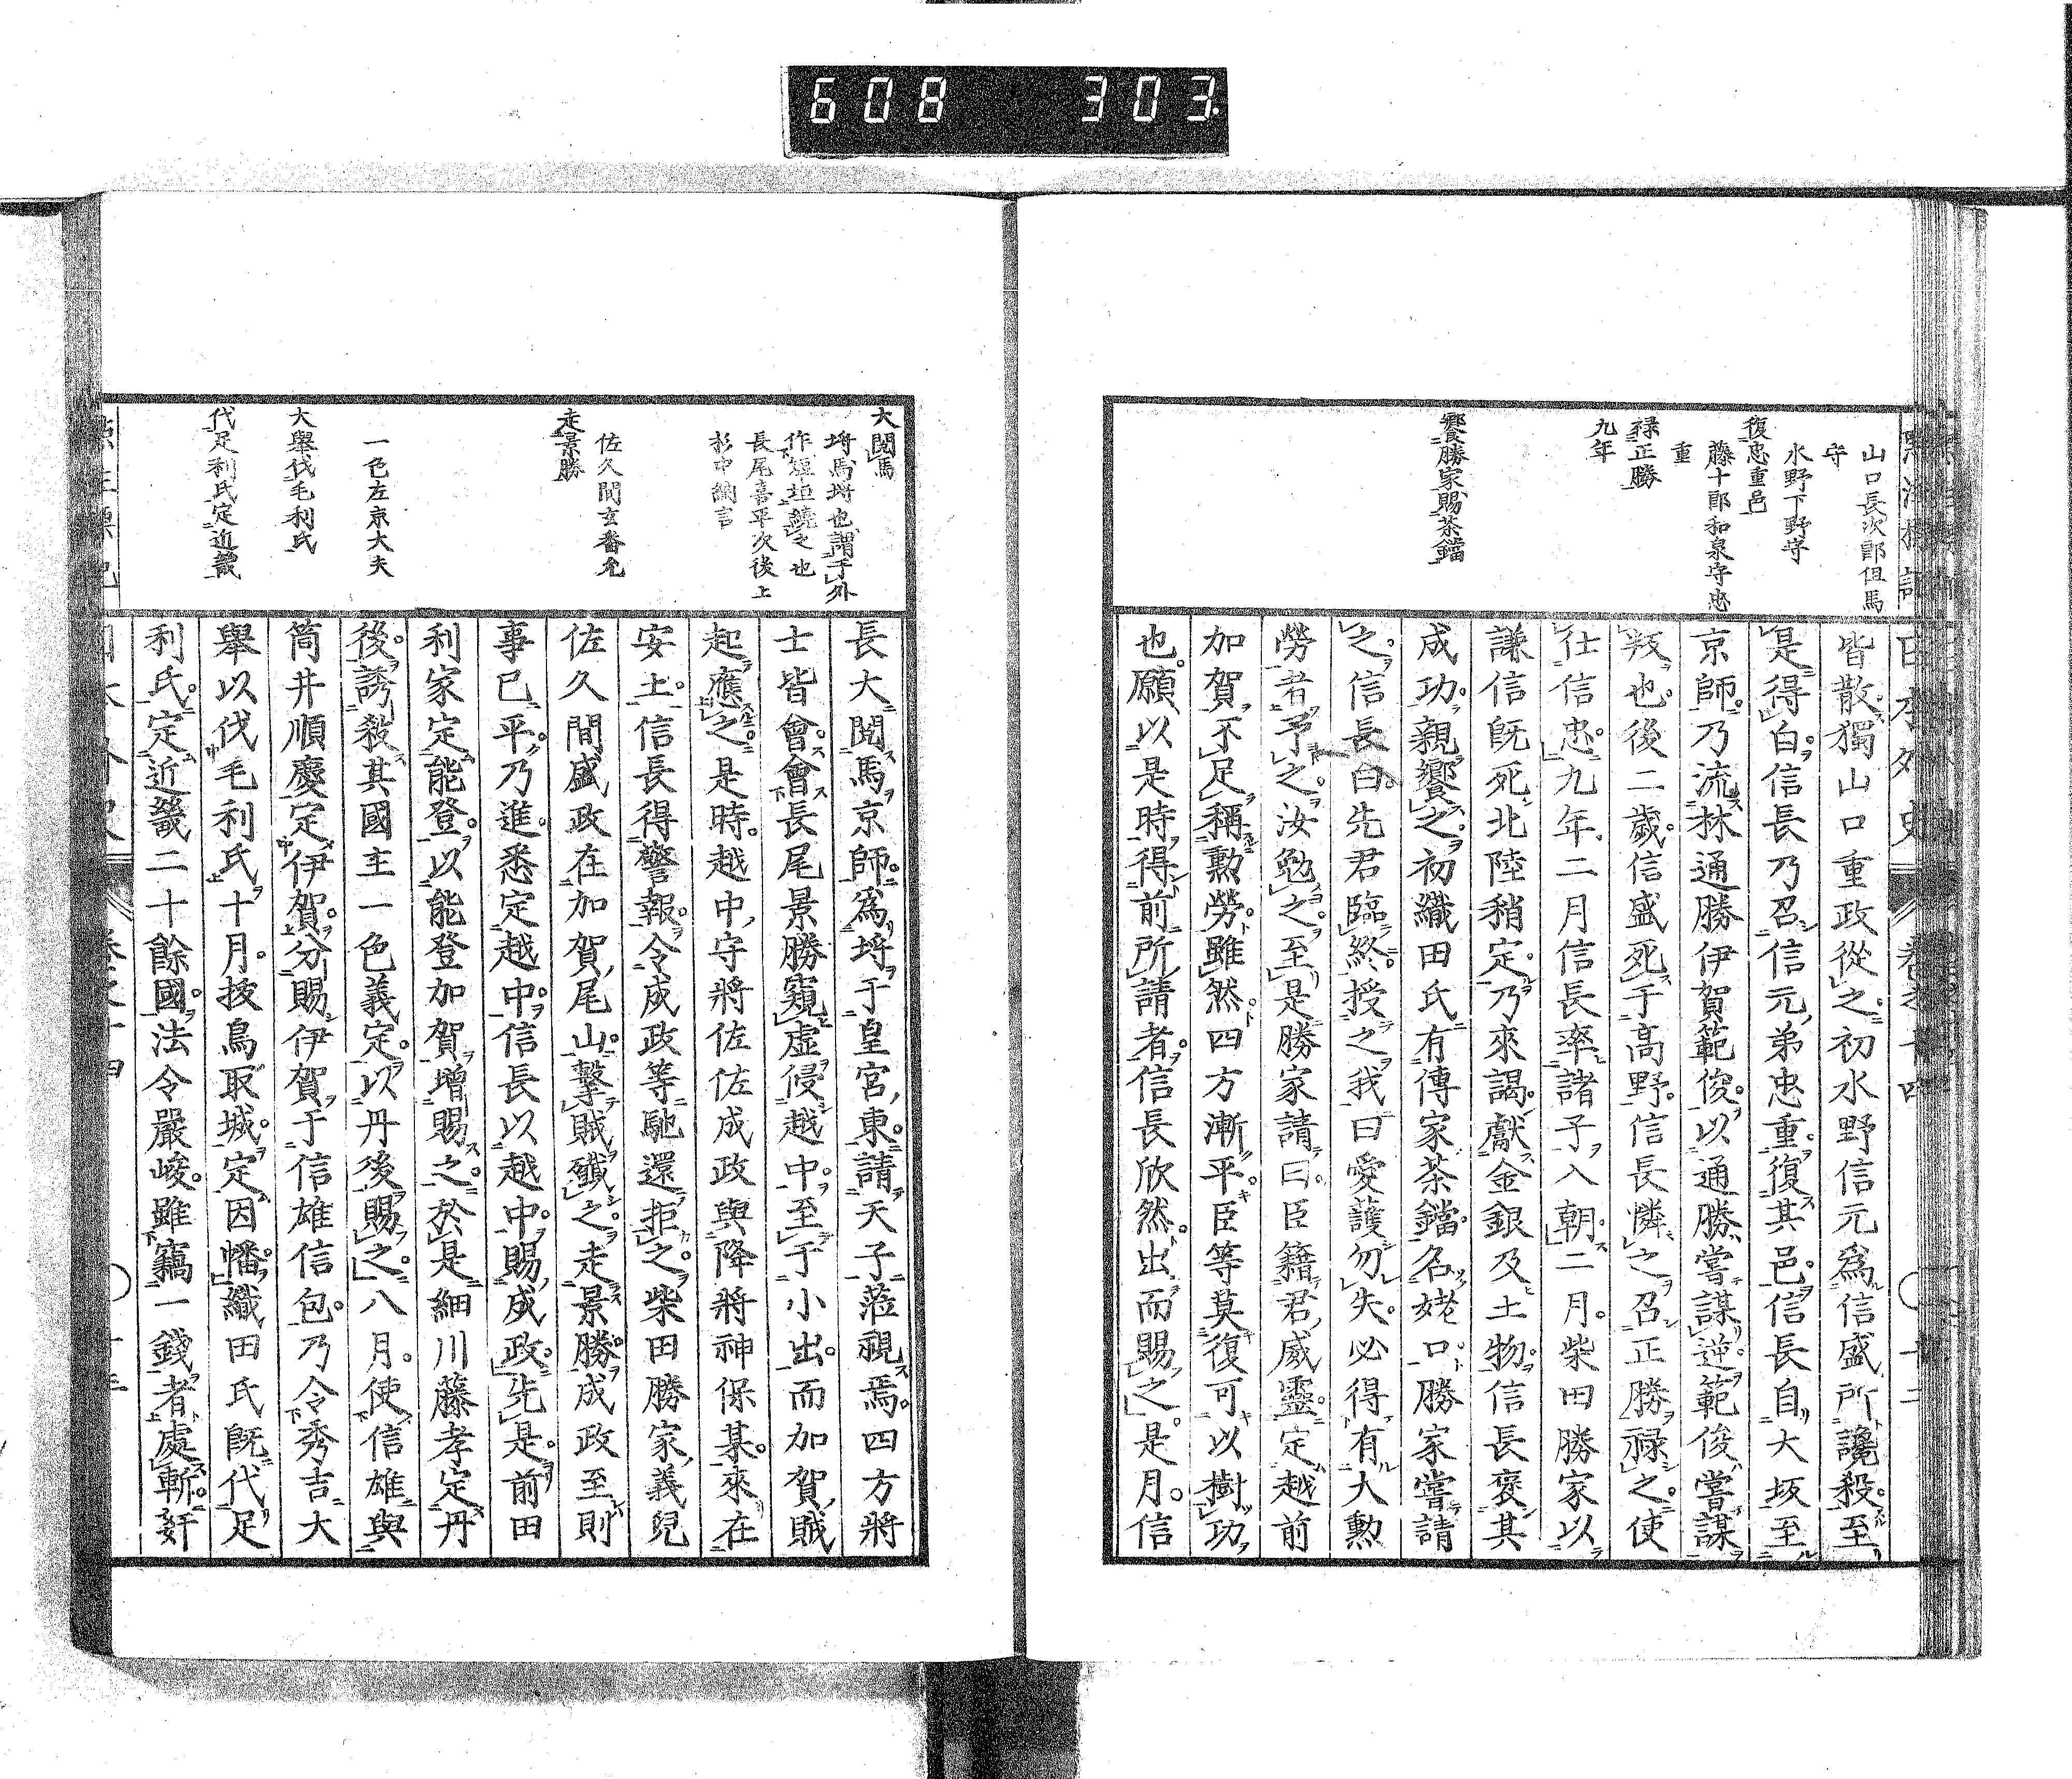 608 303
山口長次郎但馬
守
水野下野守
復忠重邑
藤十郎和泉守忠
重
祿正勝
九年
饗勝家賜茶鐺
皆散獨山口重政從之初水野信元爲信盛所讒殺至
是得白信長乃召信元弟忠重復其邑信長自大坂至
京師乃流林通勝伊賀範俊以通勝嘗謀逆範俊嘗謀
叛也後二歲信盛死于高野信長憐之召正勝祿之使
仕信忠九年二月信長率諸子入朝二月柴田勝家以
謙信既死北陸稍定乃來謁獻金銀及土物信長褒其
成功親饗之初織田氏有傳家茶鐺名姥口勝家嘗請
之信長白先君臨終授之我曰愛護勿失必得有大勳
勞者予之汝勉之至是勝家請曰臣籍君威靈定越前
加賀不足稱勳勞雖然四方漸平臣等莫復可以樹功
也願以是時得前所請者信長欣然出而賜之是月信
大閱馬
埓馬埓也謂于外
作短垣繞之也
長尾喜平次後上
杉中納言
佐久間玄番允
走景勝
一色左京大夫
大舉伐毛利氏
代足利氏定近畿
長大閱馬京師爲埓于皇宮東請天子蒞視焉四方將
士皆會會長尾景勝窺虛侵越中至于小出而加賀賊
起應之是時越中守將佐佐成政與降將神保某來在
安土信長得警報令成政等馳還拒之柴田勝家義兒
佐久間盛政在加賀尾山擊賊殲之走景勝成政至則
事已平乃進悉定越中信長以越中賜成政先是前田
利家定能登以能登加賀增賜之於是細川藤孝定丹
後誘殺其國主一色義定以丹後賜之八月使信雄與
筒井順慶定伊賀分賜伊賀于信雄信包乃令秀吉大
舉以伐毛利氏十月拔鳥取城定因幡織田氏既代足
利氏定近畿二十餘國法令嚴峻雖竊一錢者處斬奸